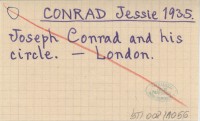 CONRAD Jessie 1935.
Joseph Conrad and his
circle. — London.